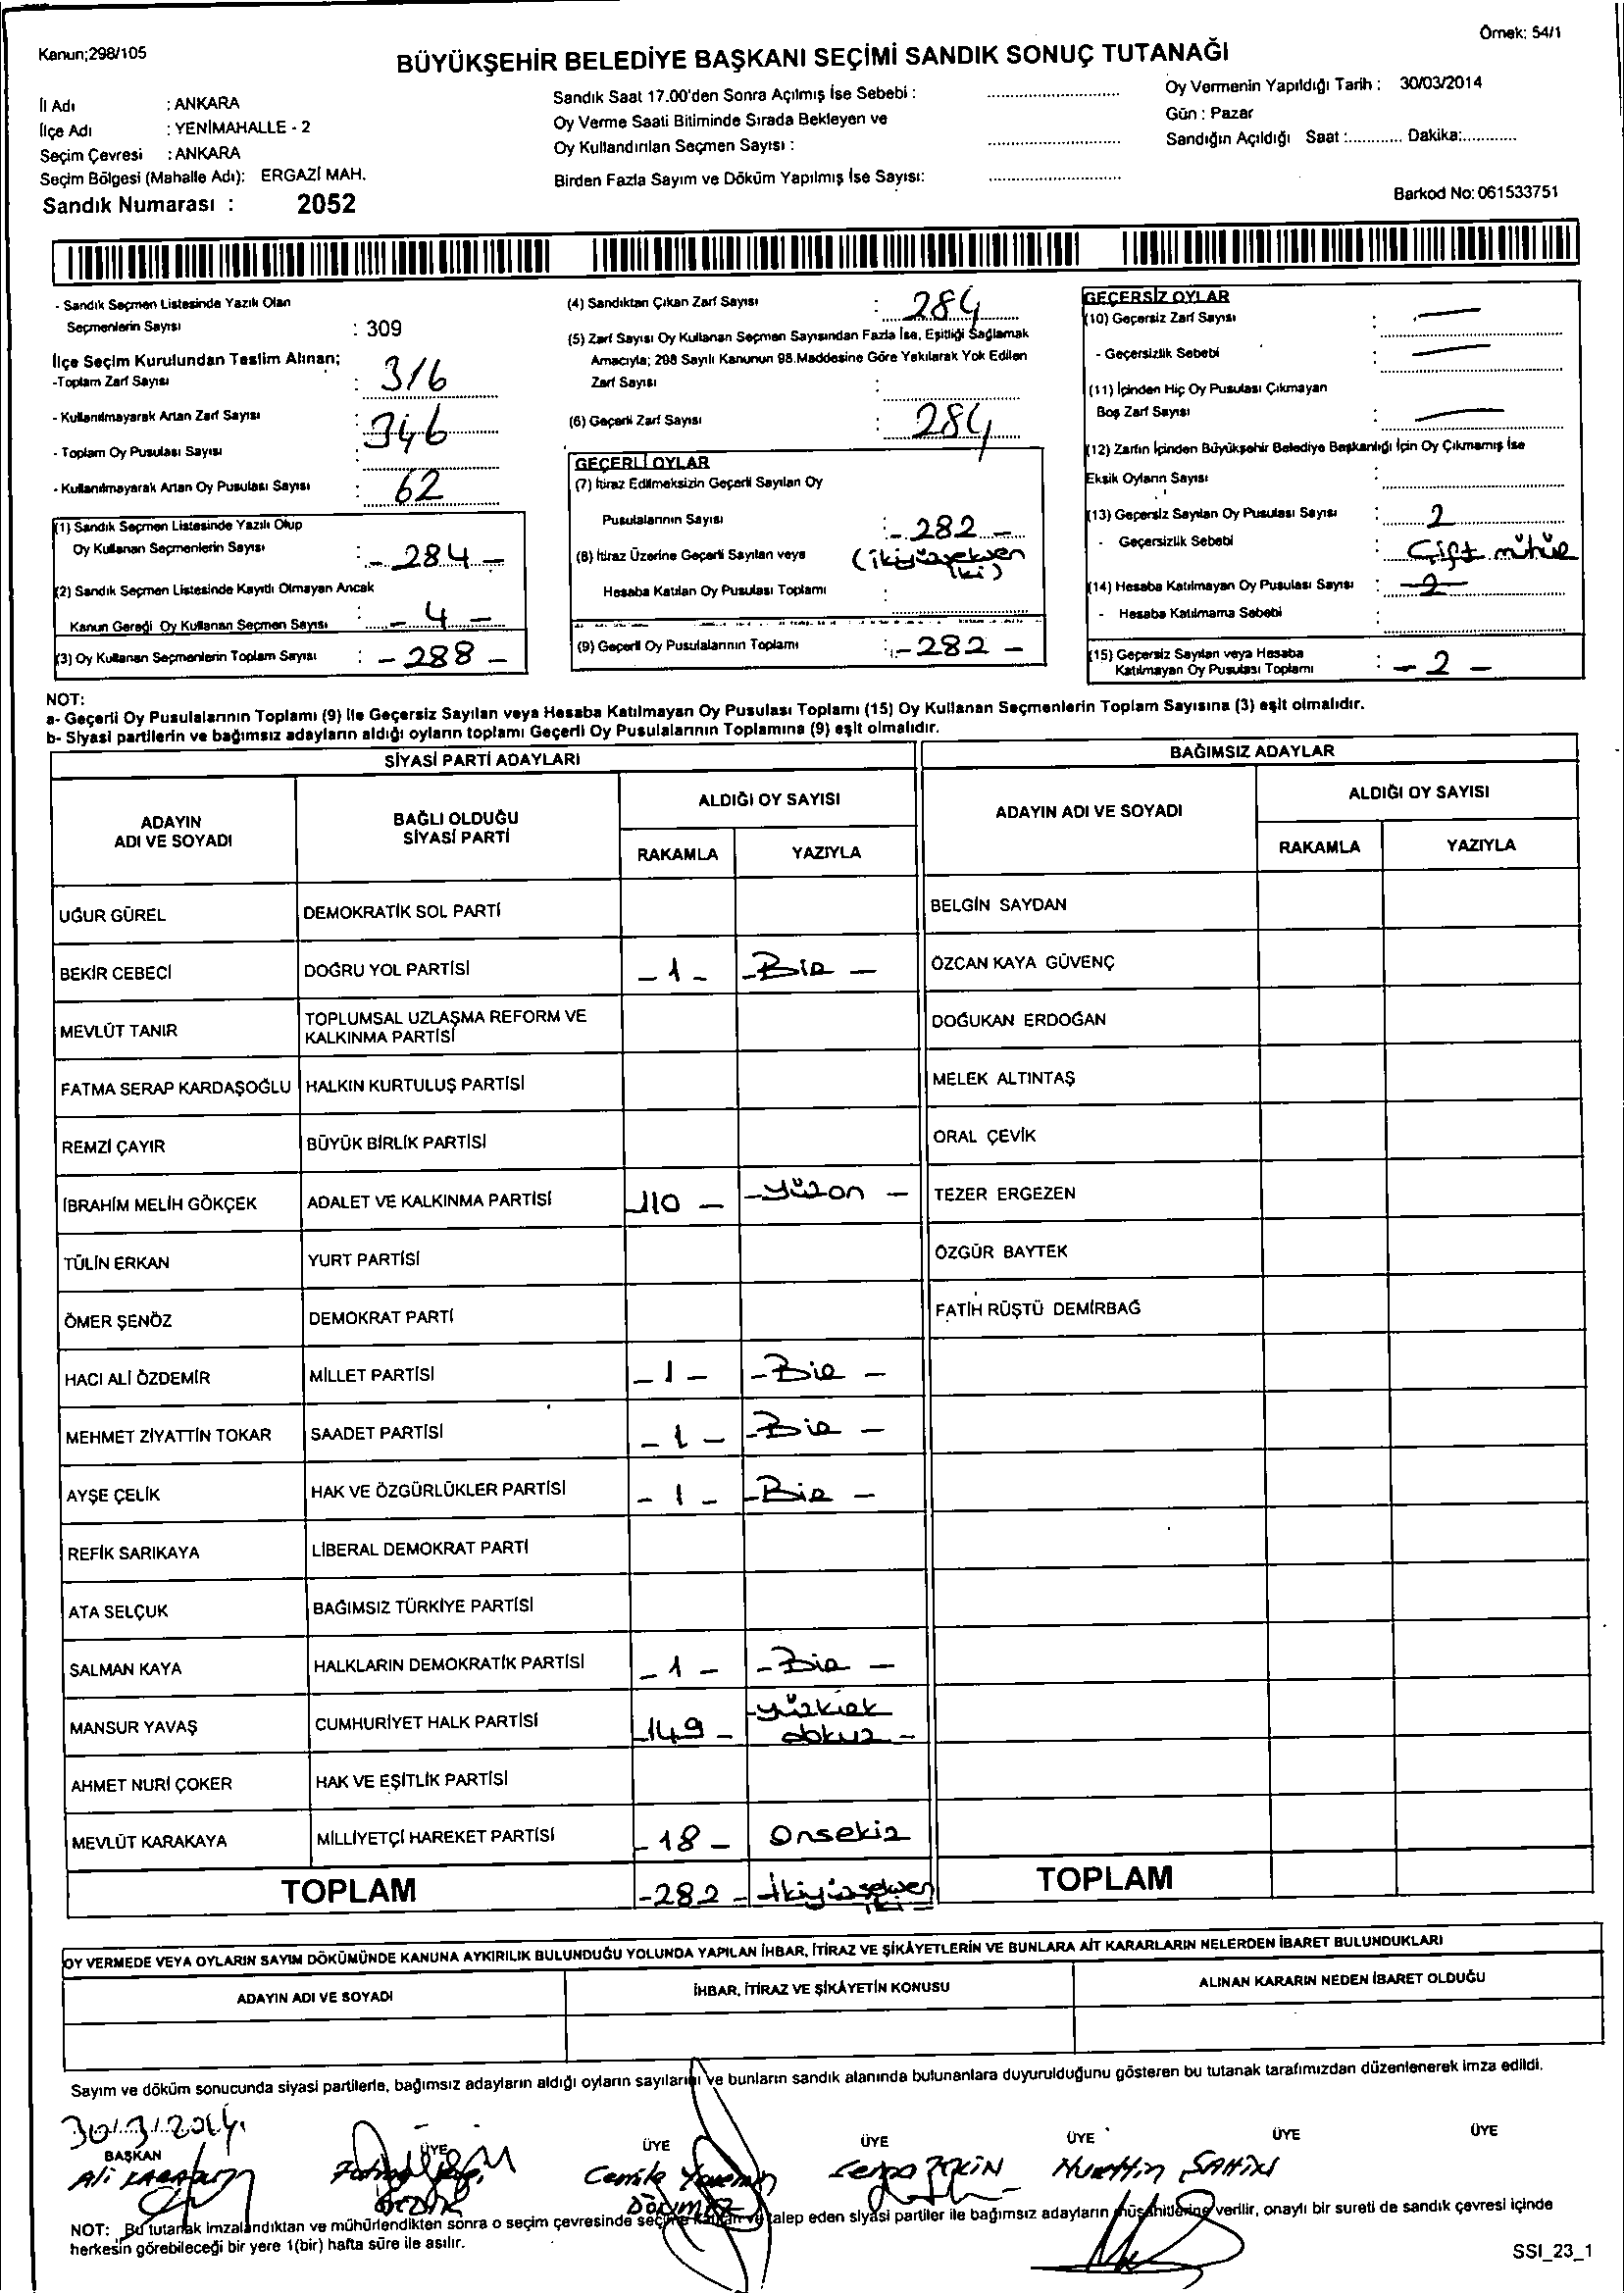 Kanun;298/105
Örnek: 54/1
BÜYÜKŞEHİR BELEDİYE BAŞKANI SEÇİMİ SANDIK SONUÇ TUTANAĞI
İl Adı : ANKARA
İlçe Adı : YENİMAHALLE - 2
Seçim Çevresi : ANKARA
Seçim Bölgesi (Mahalle Adı): ERGAZİ MAH.
Sandık Numarası : 2052
Sandık Saat 17.00'den Sonra Açılmış İse Sebebi :
Oy Verme Saati Bitiminde Sırada Bekleyen ve
Oy Kullandırılan Seçmen Sayısı :
Birden Fazla Sayım ve Döküm Yapılmış İse Sayısı:
Oy Vermenin Yapıldığı Tarih : 30/03/2014
Gün : Pazar
Sandığın Açıldığı Saat :............ Dakika:............
Barkod No: 061533751
- Sandık Seçmen Listesinde Yazılı Olan
Seçmenlerin Sayısı : 309
İlçe Seçim Kurulundan Teslim Alınan;
-Toplam Zarf Sayısı : 316
- Kullanılmayarak Artan Zarf Sayısı :
346
- Toplam Oy Pusulası Sayısı
- Kullanılmayarak Artan Oy Pusulası Sayısı : 62
(1) Sandık Seçmen Listesinde Yazılı Olup
Oy Kullanan Seçmenlerin Sayısı : - 284 -
(2) Sandık Seçmen Listesinde Kayıtlı Olmayan Ancak
Kanun Gereği Oy Kullanan Seçmen Sayısı : - 4 -
(3) Oy Kullanan Seçmenlerin Toplam Sayısı : - 288 -
(4) Sandıktan Çıkan Zarf Sayısı : 284
(5) Zarf Sayısı Oy Kullanan Seçmen Sayısından Fazla İse, Eşitliği Sağlamak
Amacıyla; 298 Sayılı Kanunun 98.Maddesine Göre Yakılarak Yok Edilen
Zarf Sayısı :
(6) Geçerli Zarf Sayısı : 284
GEÇERLİ OYLAR
(7) İtiraz Edilmeksizin Geçerli Sayılan Oy
Pusulalarının Sayısı : - 282 -
(ikiyüzseksen
iki)
(8) İtiraz Üzerine Geçerli Sayılan veya
Hesaba Katılan Oy Pusulası Toplamı :
(9) Geçerli Oy Pusulalarının Toplamı : - 282 -
GEÇERSİZ OYLAR
(10) Geçersiz Zarf Sayısı : —
- Geçersizlik Sebebi : —
(11) İçinden Hiç Oy Pusulası Çıkmayan
Boş Zarf Sayısı : —
(12) Zarfın İçinden Büyükşehir Belediye Başkanlığı İçin Oy Çıkmamış İse
Eksik Oyların Sayısı :
(13) Geçersiz Sayılan Oy Pusulası Sayısı : 2
- Geçersizlik Sebebi : Çift mühür
(14) Hesaba Katılmayan Oy Pusulası Sayısı : - 2 -
- Hesaba Katılmama Sebebi :
(15) Geçersiz Sayılan veya Hesaba
Katılmayan Oy Pusulası Toplamı : - 2 -
NOT:
a- Geçerli Oy Pusulalarının Toplamı (9) İle Geçersiz Sayılan veya Hesaba Katılmayan Oy Pusulası Toplamı (15) Oy Kullanan Seçmenlerin Toplam Sayısına (3) eşit olmalıdır.
b- Siyasi partilerin ve bağımsız adayların aldığı oyların toplamı Geçerli Oy Pusulalarının Toplamına (9) eşit olmalıdır.
SİYASİ PARTİ ADAYLARI
BAĞIMSIZ ADAYLAR
ADAYIN ADI VE SOYADI
BAĞLI OLDUĞU SİYASİ PARTİ
ALDIĞI OY SAYISI
RAKAMLA YAZIYLA
ADAYIN ADI VE SOYADI
ALDIĞI OY SAYISI
RAKAMLA YAZIYLA
UĞUR GÜREL DEMOKRATİK SOL PARTİ BELGİN SAYDAN
BEKİR CEBECİ DOĞRU YOL PARTİSİ - 1 - - Bir - ÖZCAN KAYA GÜVENÇ
MEVLÜT TANIR TOPLUMSAL UZLAŞMA REFORM VE KALKINMA PARTİSİ DOĞUKAN ERDOĞAN
FATMA SERAP KARDAŞOĞLU HALKIN KURTULUŞ PARTİSİ MELEK ALTINTAŞ
REMZİ ÇAYIR BÜYÜK BİRLİK PARTİSİ ORAL ÇEVİK
İBRAHİM MELİH GÖKÇEK ADALET VE KALKINMA PARTİSİ - 110 - - Yüzon - TEZER ERGEZEN
TÜLİN ERKAN YURT PARTİSİ ÖZGÜR BAYTEK
ÖMER ŞENÖZ DEMOKRAT PARTİ FATİH RÜŞTÜ DEMİRBAĞ
HACI ALİ ÖZDEMİR MİLLET PARTİSİ - 1 - - Bir -
MEHMET ZİYATTİN TOKAR SAADET PARTİSİ - 1 - - Bir -
AYŞE ÇELİK HAK VE ÖZGÜRLÜKLER PARTİSİ - 1 - - Bir -
REFİK SARIKAYA LİBERAL DEMOKRAT PARTİ
ATA SELÇUK BAĞIMSIZ TÜRKİYE PARTİSİ
SALMAN KAYA HALKLARIN DEMOKRATİK PARTİSİ - 1 - - Bir -
MANSUR YAVAŞ CUMHURİYET HALK PARTİSİ - 149 - - Yüzkırk dokuz -
AHMET NURİ ÇOKER HAK VE EŞİTLİK PARTİSİ
MEVLÜT KARAKAYA MİLLİYETÇİ HAREKET PARTİSİ - 18 - Onsekiz
TOPLAM - 282 - - ikiyüzseksen iki - TOPLAM
OY VERMEDE VEYA OYLARIN SAYIM DÖKÜMÜNDE KANUNA AYKIRILIK BULUNDUĞU YOLUNDA YAPILAN İHBAR, İTİRAZ VE ŞİKÂYETLERİN VE BUNLARA AİT KARARLARIN NELERDEN İBARET BULUNDUKLARI
ADAYIN ADI VE SOYADI İHBAR, İTİRAZ VE ŞİKÂYETİN KONUSU ALINAN KARARIN NEDEN İBARET OLDUĞU
Sayım ve döküm sonucunda siyasi partilerle, bağımsız adayların aldığı oyların sayılarını ve bunların sandık alanında bulunanlara duyurulduğunu gösteren bu tutanak tarafımızdan düzenlenerek imza edildi.
30/3/2014
BAŞKAN ÜYE ÜYE ÜYE ÜYE ÜYE ÜYE
Ali Cemile Nurettin ŞAHİN
NOT: Bu tutanak imzalandıktan ve mühürlendikten sonra o seçim çevresinde seçime katılan ve talep eden siyasi partiler ile bağımsız adayların müşahitlerine verilir, onaylı bir sureti de sandık çevresi içinde
herkesin görebileceği bir yere 1(bir) hafta süre ile asılır.
SSI_23_1